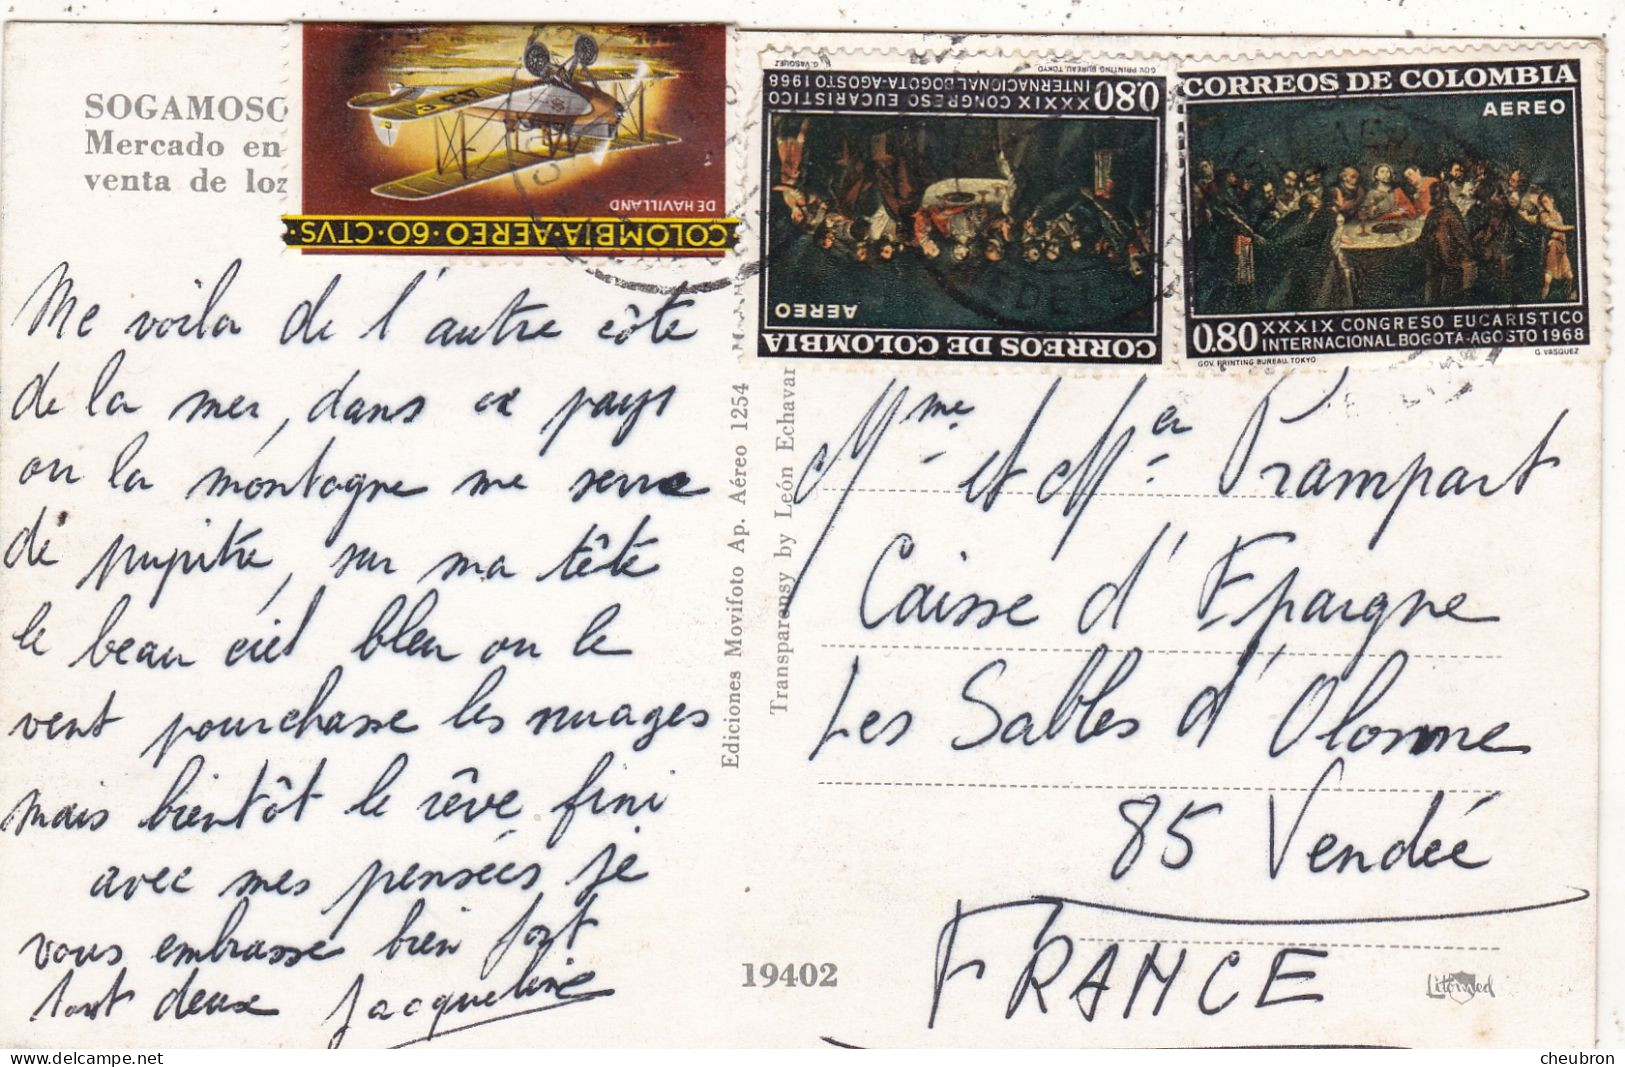 SOGAMOSO
Mercado en
venta de loz
DE HAVILLAND
COLOMBIA·AEREO·60·CTVS·
G. VASQUEZ
GOV. PRINTING BUREAU, TOKYO
0.80 XXXIX CONGRESO EUCARISTICO
INTERNACIONAL. BOGOTA-AGOSTO 1968
AEREO
CORREOS DE COLOMBIA
CORREOS DE COLOMBIA
AEREO
0.80 XXXIX CONGRESO EUCARISTICO
INTERNACIONAL. BOGOTA-AGOSTO 1968
GOV. PRINTING BUREAU, TOKYO
G. VASQUEZ
Me voila de l'autre côte
de la mer, dans ce pays
ou la montagne me serre
de pupitre, sur ma tête
le beau ciel bleu ou le
vent pourchasse les nuages
mais bientôt le rêve fini
avec mes pensées je
vous embrasse bien fort
tout deux Jacqueline
Ediciones Movifoto Ap. Aéreo 1254
Transparensy by León Echavar
19402
Mme et Mer Prampart
Caisse d'Epargne
Les Sables d'Olonne
85 Vendée
FRANCE
Litomed
cheubron